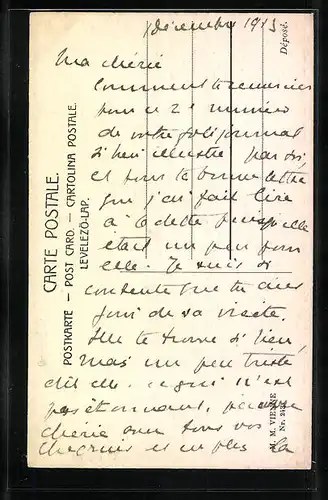 décembre 1913
Ma chérie
Comment te remercier
pour ce 2e numéro
de votre joli journal
si bien illustré par toi,
et pour ta bonne lettre
que j'ai fait lire
à Odette puisqu'elle
était un peu pour
elle. Je suis si
contente que tu aies
joui de sa visite.
Elle te trouve si bien,
mais un peu triste
dit-elle. ce qui n'est
pas étonnant, pauvre
chérie avec tous vos
chagrins et en plus la
CARTE POSTALE.
POSTKARTE — POST CARD. — CARTOLINA POSTALE.
LEVELEZŐ-LAP.
Déposé.
M. M. VIENNE
Nr.